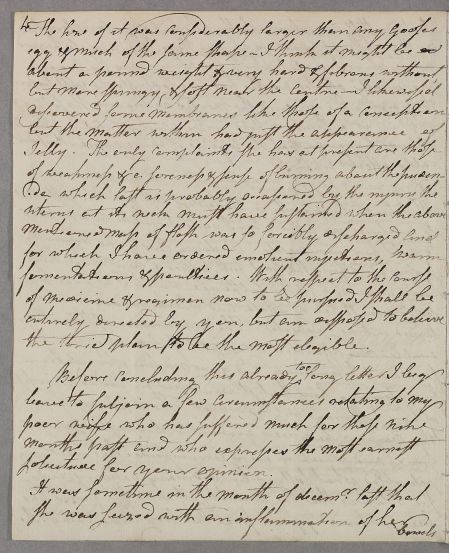 4 The size of it was considerably larger than any Gooses
egg & much of the same shape – I think it might be
about a pound weight & very hard & fibrous without,
but more spungy & soft near the centre – I likewise
discovered some membranes like those of a conception
but the matter within had just the appearance of
Jelly. The only complaints she has at present are those
of weakness &c. soreness & sense of burning about the puden-
-da which last is probably occasioned by the injury the
uterus at its neck must have sustained when the above
mentioned mass of flesh was so forcibly discharged and
for which I have ordered emolient injections, warm
fomentations & poultices. With respect to the course
of medicine & regimen now to be pursued I shall be
entirely directed by you, but am disposed to believe
the tried plan to be the most eligible.
Before concluding this already too long letter I beg
leave to subjoin a few circumstances relating to my
poor who has suffered much for these nine
months past and who expresses the most earnest
solicitude for your opinion.
It was sometime in the month of decemr. last that
she was seized with an inflammation of her
Bowels